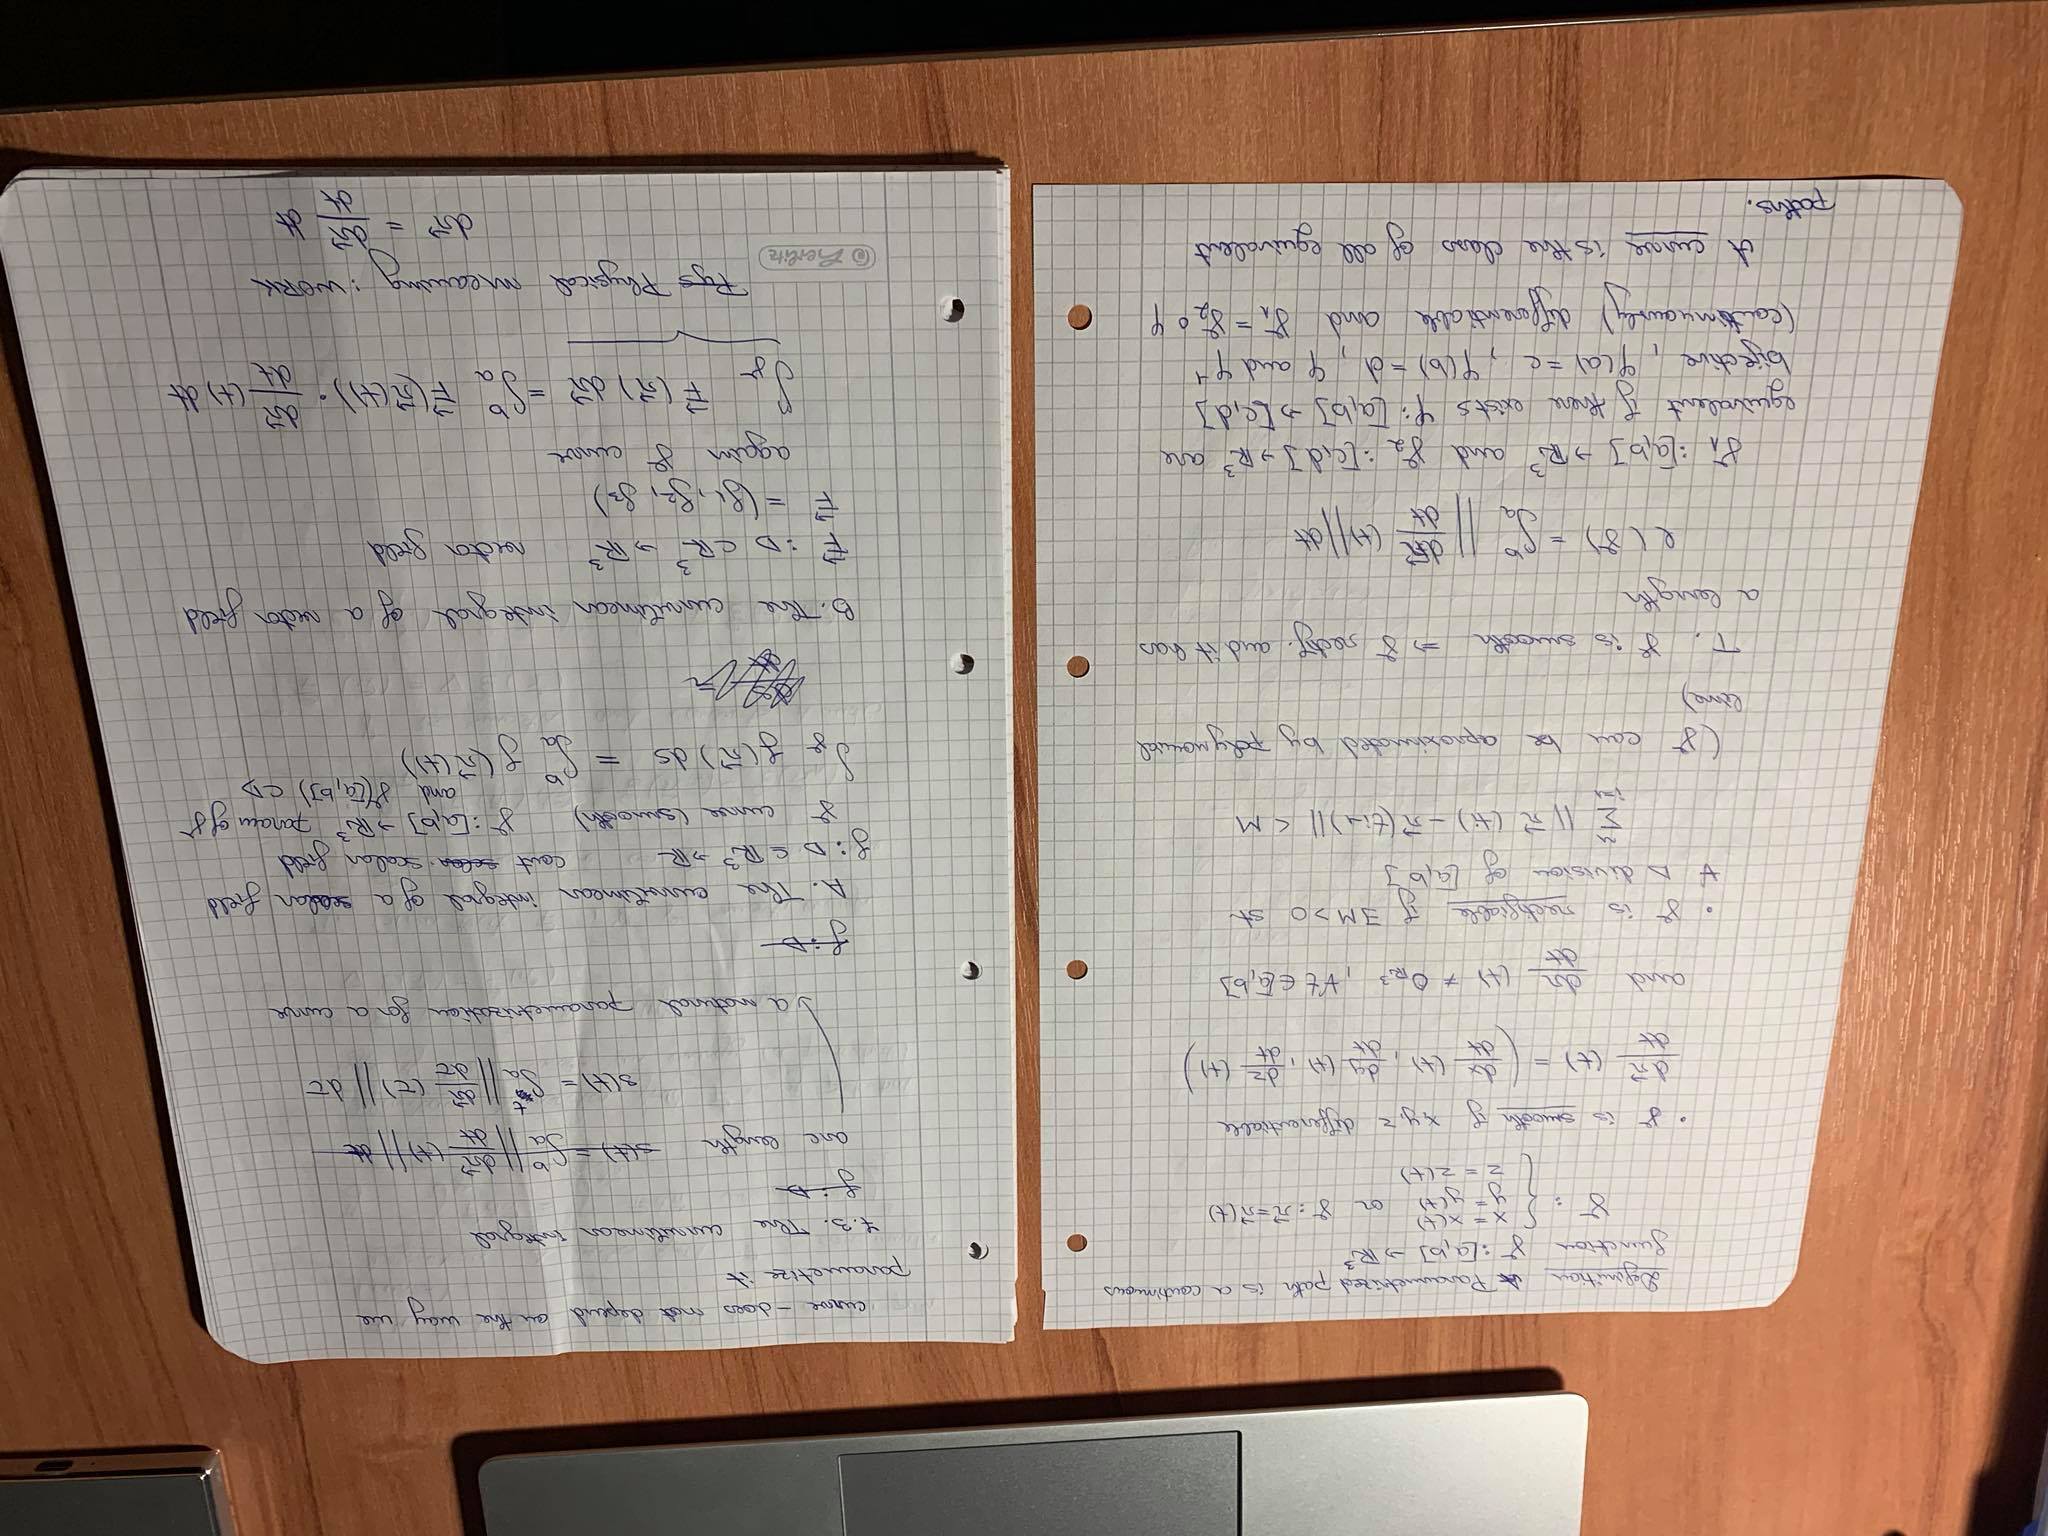 Definition A Parametrized path is a continuous
function γ : [a,b] → ℝ³
γ : { x = x(t)
y = y(t) or γ : r⃗ = r⃗(t)
z = z(t)
• γ is smooth if x,y,z differentiable
dr⃗/dt (t) = (dx/dt (t), dy/dt (t), dz/dt (t))
and dr/dt (t) ≠ 0_ℝ³ , ∀t ∈ [a,b]
• γ is rectifiable if ∃ M > 0 st
∀ Δ division of [a,b]
∑_{i=1}^{n} || r⃗ (ti) − r⃗ (ti-1) || < M
(γ can be aproximated by polynomial
line)
T. γ is smooth ⇒ γ rectif. and it has
a length
l(γ) = ∫_a^b || dr⃗/dt (t) || dt
γ1 : [a,b] → ℝ³ and γ2 : [c,d] → ℝ³ are
equivalent if there exists φ : [a,b] → [c,d]
bijective , φ(a) = c , φ(b) = d , φ and φ⁻¹
(continuously) differentiable and γ1 = γ2 ∘ φ
A curve is the class of all equivalent
paths.
curve - does not depend on the way we
parametize it
7.3. The curvilinear integral
f : D
arc length s(t) = ∫_a^b || dr⃗/dt (t) || dt
s(t) = ∫_a^t || dr⃗/dτ (τ) || dτ
a natural parametrization for a curve
f : D
A. The curvilinear integral of a scalar field
f : D ⊆ ℝ³ → ℝ cont scalar scalar field
γ curve (smooth) γ : [a,b] → ℝ³ param of γ
and γ([a,b]) ⊂ D
∫_γ f(r⃗) ds = ∫_a^b f(r⃗(t))
B. The curvilinear integral of a vector field
F⃗ : D ⊂ ℝ³ → ℝ³ vector field
F⃗ = (f1, f2, f3)
again γ curve
∫_γ F⃗(r⃗) dr⃗ = ∫_a^b F⃗(r⃗(t)) · dr⃗/dt (t) dt
Pys Physical meaning : WORK
herlitz
dr⃗ = dr⃗/dt dt